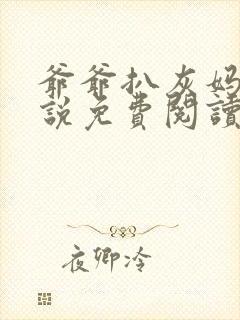 爺爺扒灰妈
説免費閱讀
夜卿冷